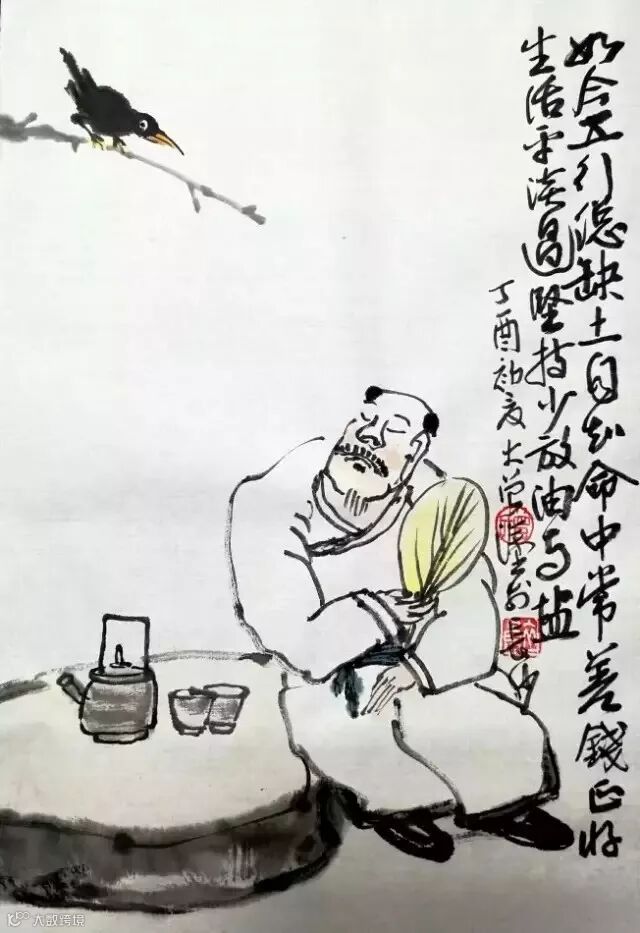 如今五行总缺土自知命中常差錢正好
生活平淡過坚持少放油与盐
丁酉初夏大曾
長沙
大数跨境